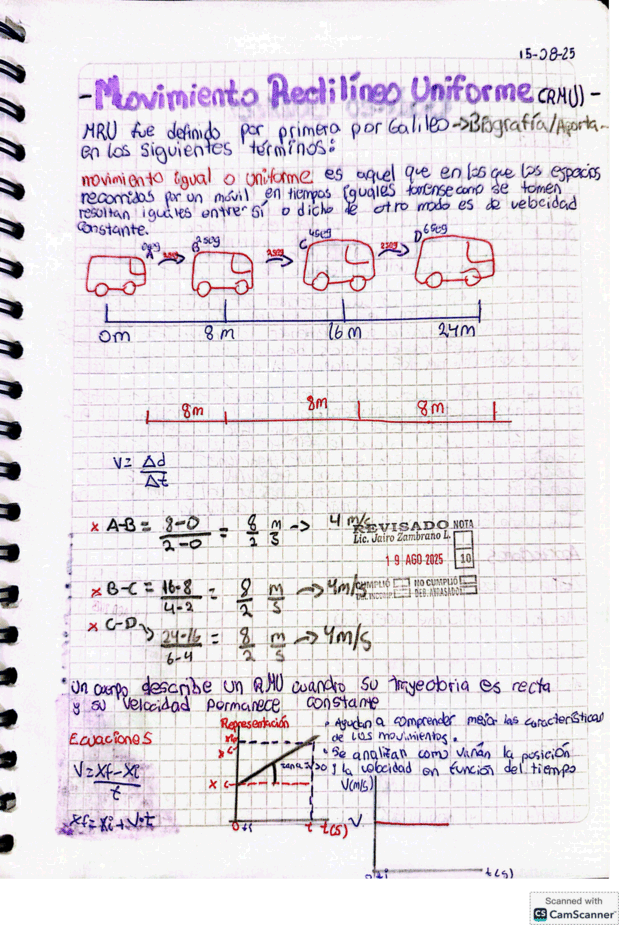 15-08-25
- Movimiento Rectilíneo Uniforme (RMU) -
MRU fue definido por primera por Galileo → Biografía/Aporta-
en los siguientes términos:
movimiento igual o uniforme es aquel que en los que los espacios
recorridos por un móvil en tiempos iguales tomense como se tomen
resultan iguales entre sí o dicho de otro modo es de velocidad
constante.
0seg 2seg 4seg 6seg
A B C D
2seg 2seg 2seg
0m 8m 16m 24m
8m 8m 8m
V= Δd
Δt
x A-B = 8-0 = 8 m → 4 m/s
2-0 2 s
REVISADO NOTA
Lic. Jairo Zambrano L.
19 AGO 2025 10
CUMPLIÓ NO CUMPLIÓ
DEB. INCOMP. DEB. ATRASADO
x B-C = 16-8 = 8 m → 4m/s
4-2 2 s
x C-D → 24-16 = 8 m → 4m/s
6-4 2 s
Un cuerpo describe un RMU cuando su trayectoria es recta
y su velocidad permanece constante
Ecuaciones
V= Xf - Xi
t
Xf = Xi + V·t
Representación
x
t t(s)
• Ayudan a comprender mejor las características
de los movimientos.
• Se analizan como varían la posición
y la velocidad en función del tiempo
V(m/s)
V
t(s)
Scanned with
CS CamScanner